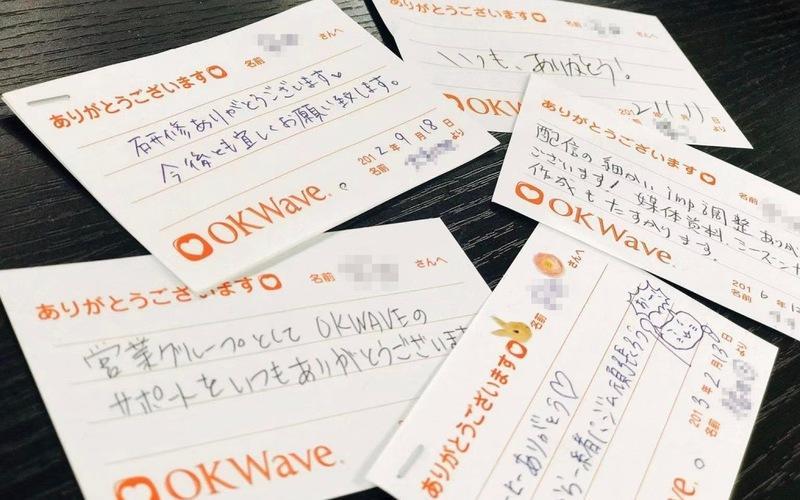 ありがとうございます
名前 さんへ
研修ありがとうございます。
今後とも宜しくお願い致します。
2012年9月18日
名前 より
OKWave.
ありがとうございます
名前 さんへ
いつも、ありがとう!
OKW
月 日
より
ありがとうございます
名前
配信の細かい imp調整 ありが
ございます! 媒体資料
作成もたすかります。
2016年
名前
OKWave.
ありがとうございます
名前 さんへ
営業グループとして OKWAVEの
サポートをいつもありがとうございま
OKWave.
ありがとうございます
名前 さんへ
ーありがとう♡
一緒に
頑張ろう
2013年2月13日
名前 より
OKWave.